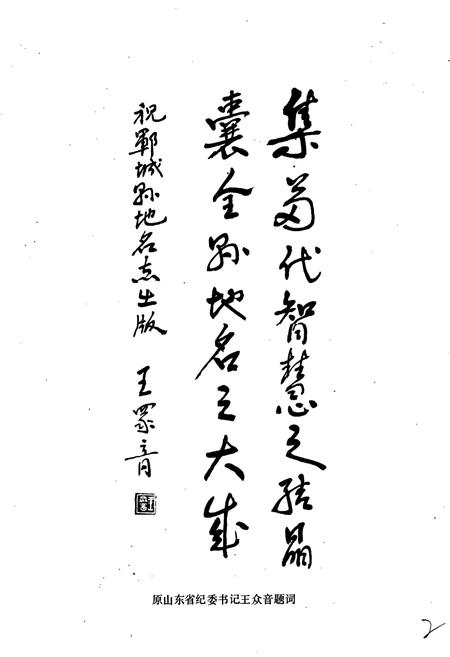 集萬代智慧之結晶
囊全縣地名之大成
祝鄆城縣地名志出版
王眾音
原山东省纪委书记王众音题词
2